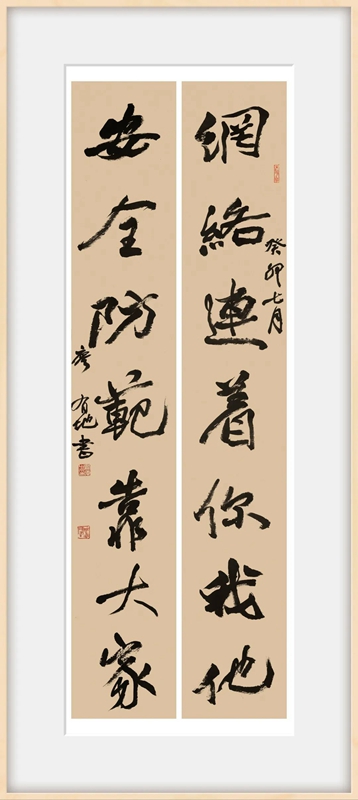 網絡連着你我他
癸卯七月
安全防範靠大家
有地書